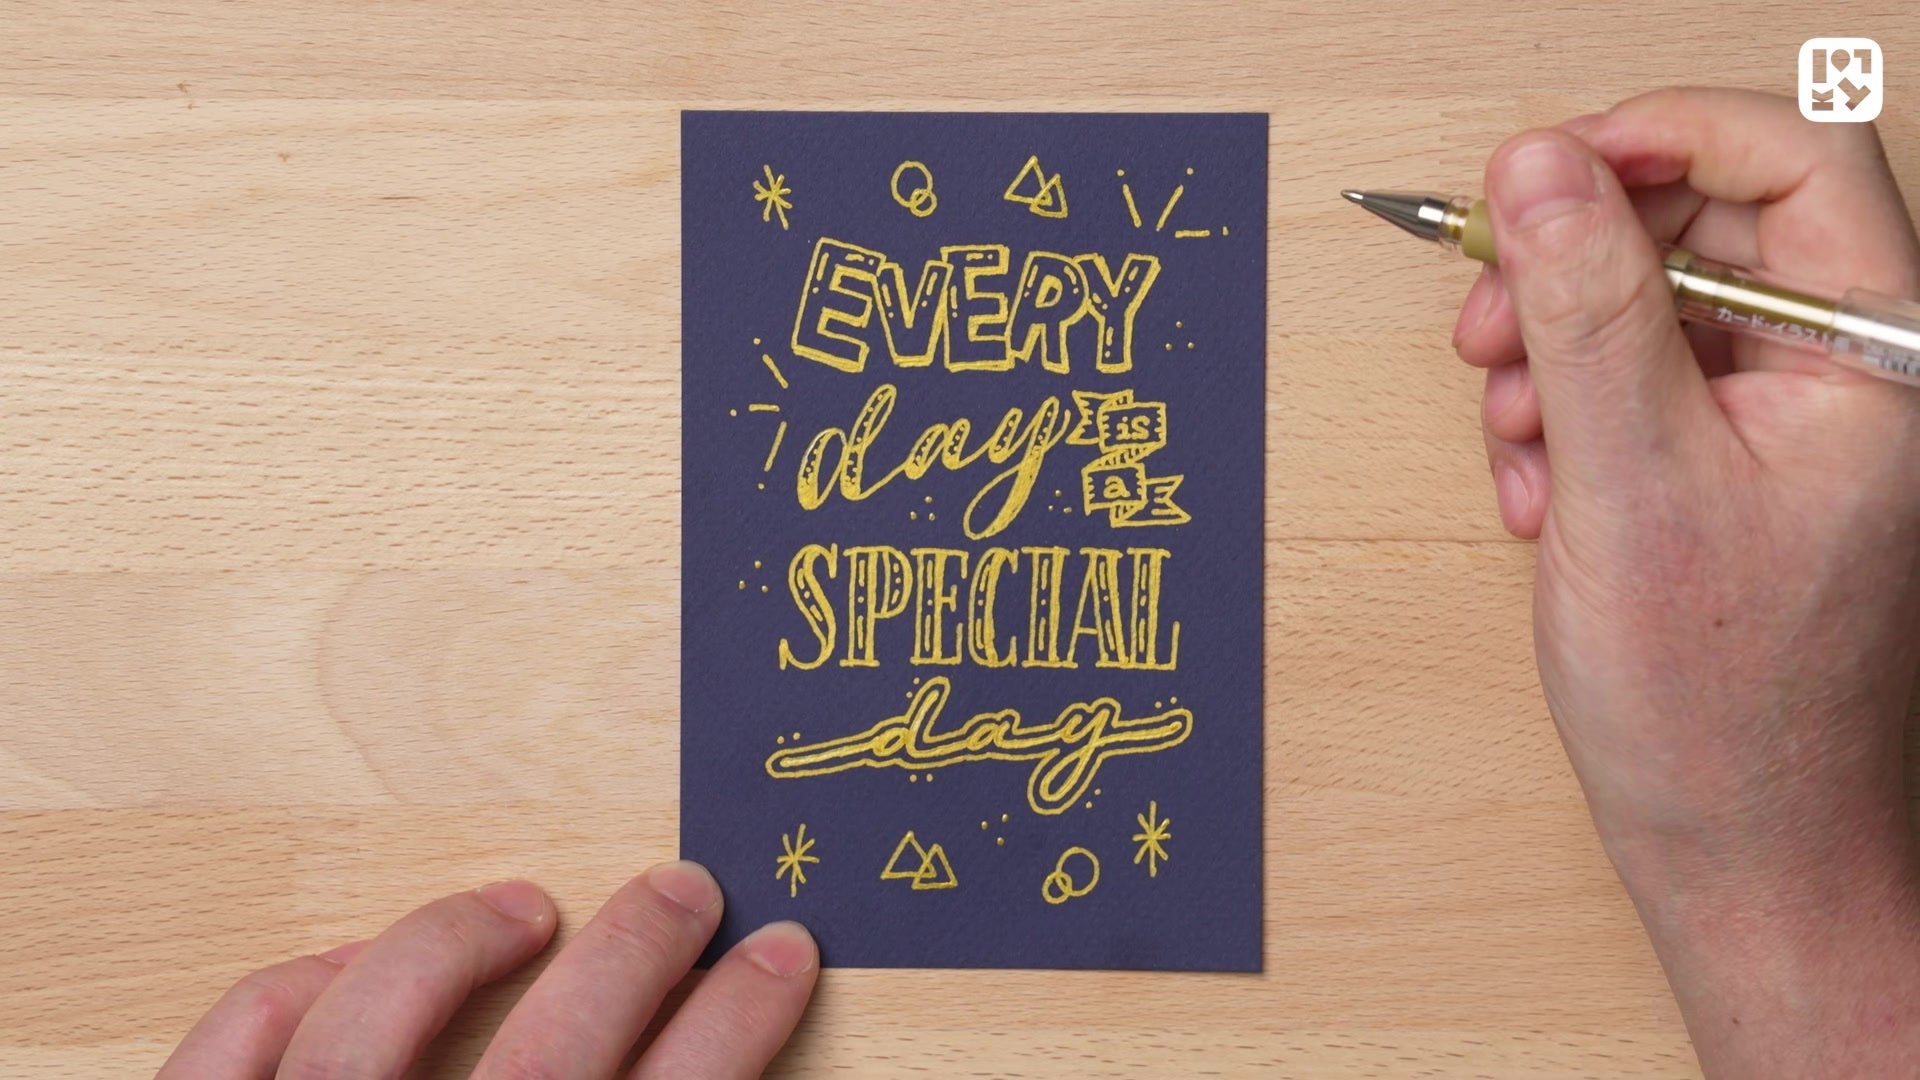 EVERY
day is
a
SPECIAL
day
カード・イラスト用